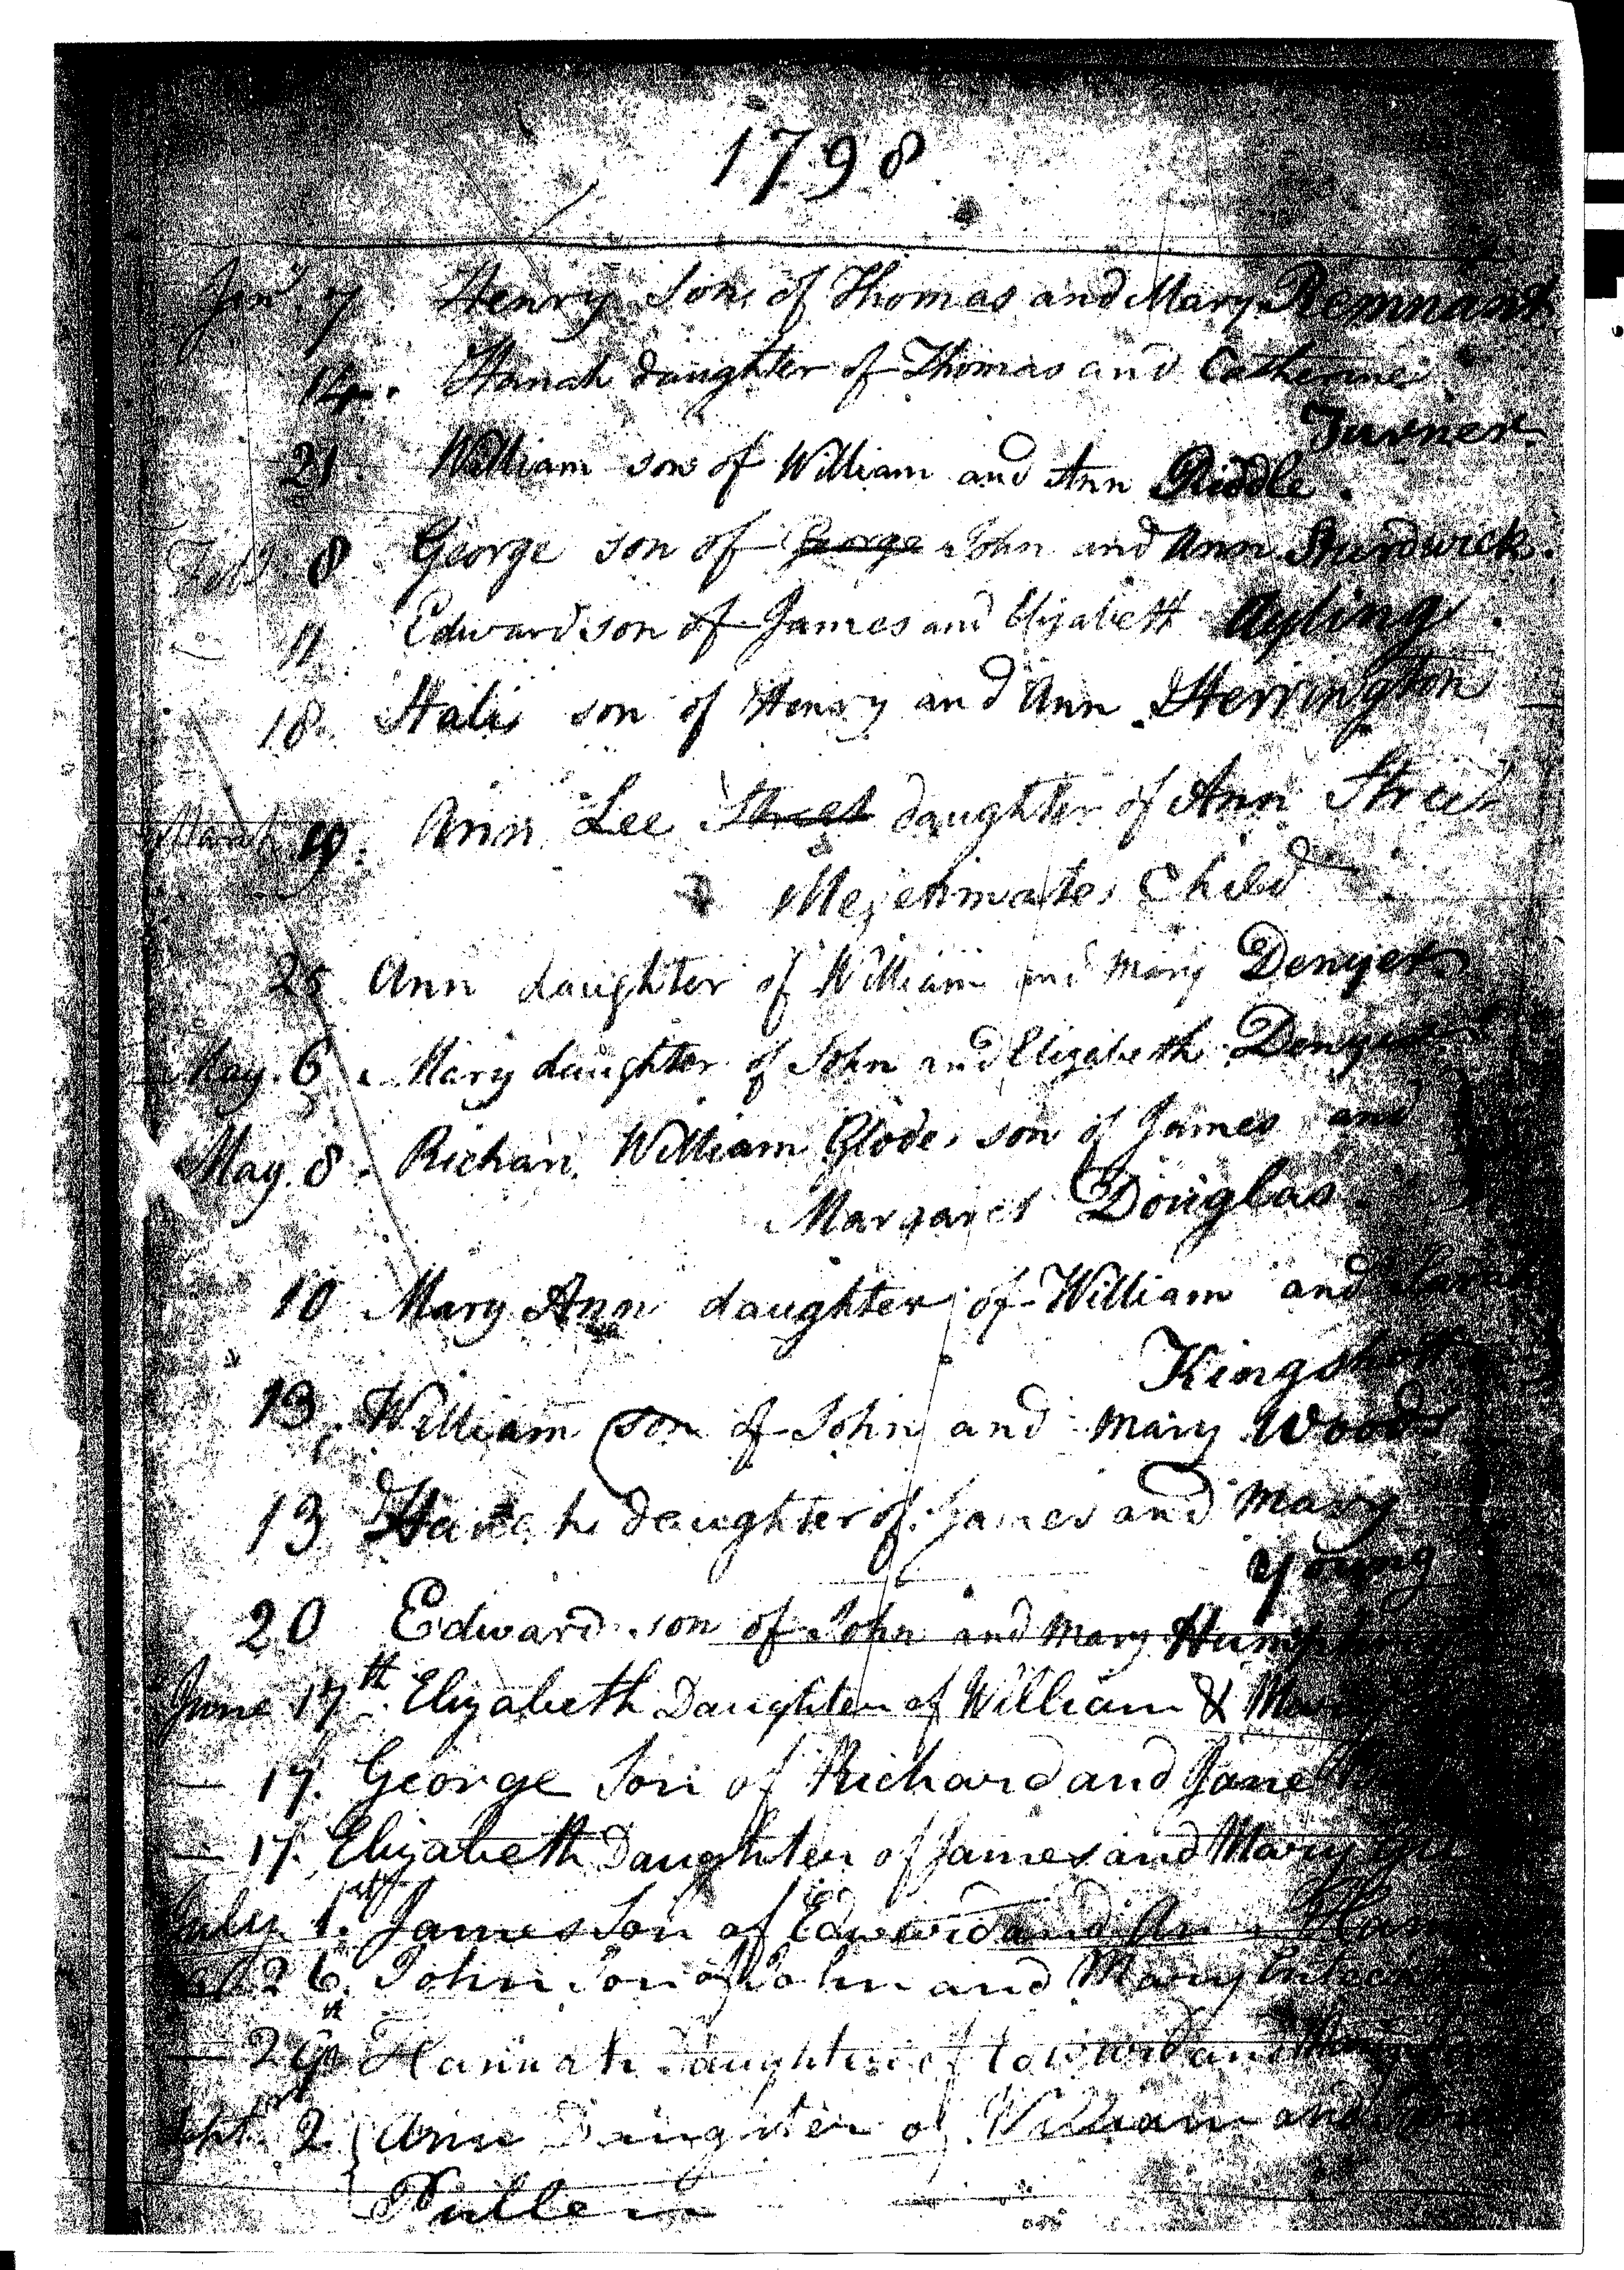 1798
Jany 7 Henry Son of Thomas and Mary Remnant
14. Hanah daughter of Thomas and Catherine
Turner.
21 William son of William and Ann Riddle.
Feby 8 George son of George John and Ann Shurdwick.
11 Edward son of James and Elizabeth Ayling.
18. son of Henry and Ann Herrington
March 19. Ann Lee Street daughter of Ann Street
Child
25 Ann daughter of William and Mary Denyer
May. 6. Mary daughter of John and Elizabeth Denyer
May. 8. Richard William Glode, son of James and
Margaret Douglas.
10 Mary Ann daughter of William and Sarah
Kingshott
13, William son of John and Mary Woods
13 daughter of James and Mary
Young
20 Edward son of John and Mary
June 17th. Elizabeth Daughter of William & Mary
— 17. George Son of Richard and Jane
— 17. Elizabeth Daughter of James and Mary
July 1st James Son of Edward and Ann
26 John Son of John and Mary
— Hannah Daughter of Edward and
Sept. 2 Ann Daughter of William and
Pullen